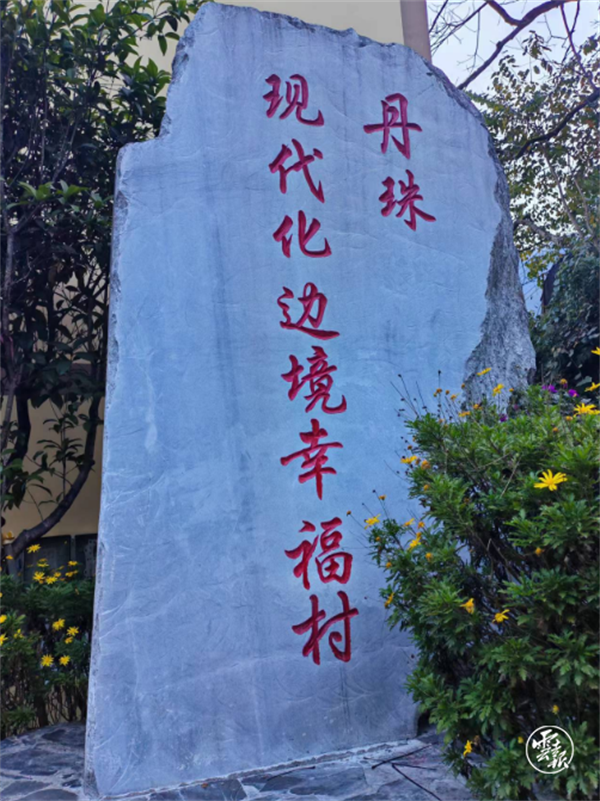 丹珠
现代化边境幸福村